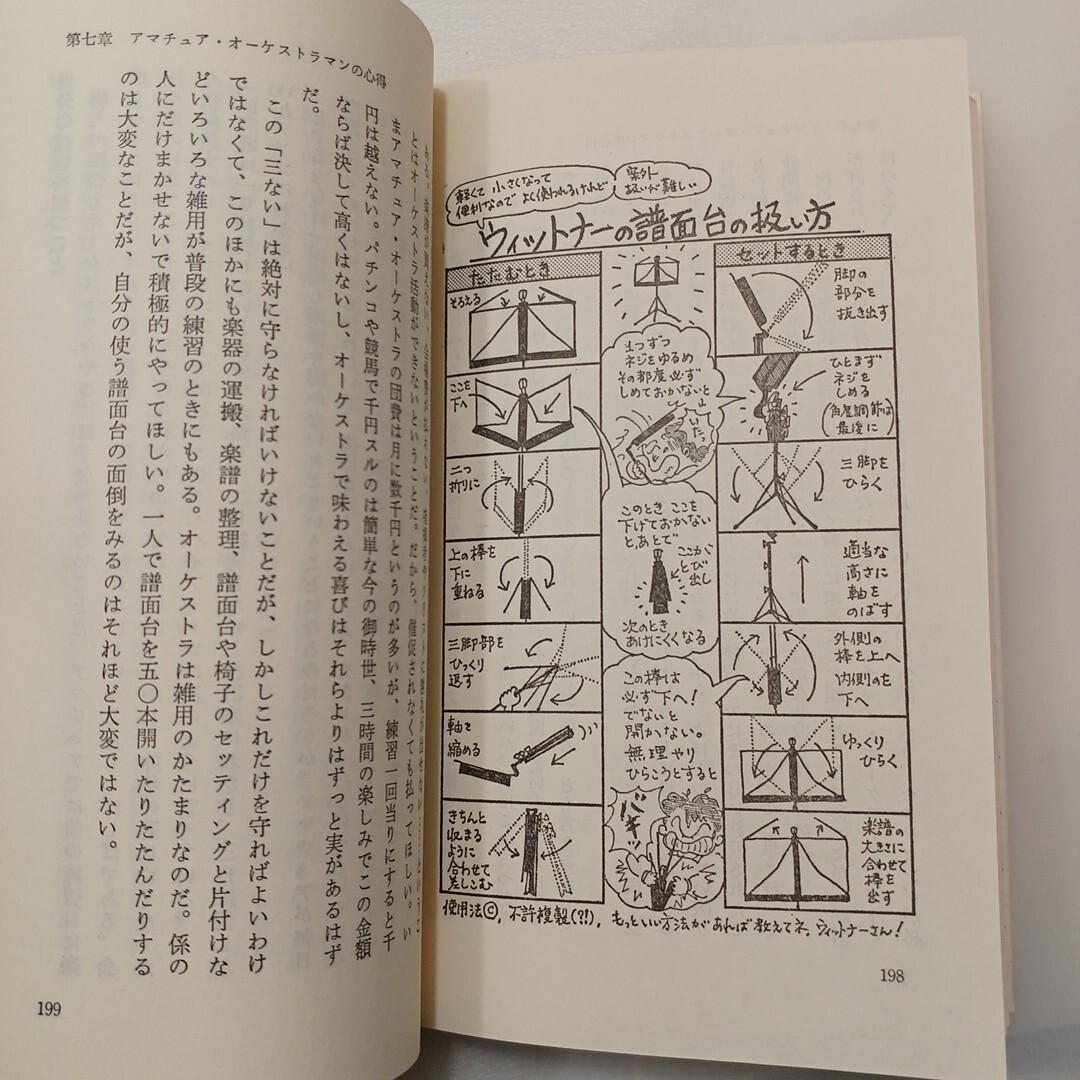 軽くて 小さくなって
便利なので よく使われるけれど
案外
扱いが難しい
ウィットナーの譜面台の扱い方
セットするとき
脚の
部分を
抜き出す
ひとまず
ネジを
しめる
(角度調節は
最後に)
三脚を
ひらく
適当な
高さに
軸を
のばす
外側の
棒を上へ
内側のを
下へ
ゆっくり
ひらく
楽譜の
大きさに
合わせて
棒を
出す
1つずつ
ネジをゆるめ
その都度必ず
しめておかないと
いたっ
このとき ここを
下げておかない
と、あとで
ここが
とび出し
次のとき
あけにくくなる
この棒は
必ず下へ!
でないと
開かない。
無理やり
ひらこうとすると
バキッ
たたむとき
そろえる
ここを
下へ
二つ
折りに
上の棒を
下に
重ねる
三脚部を
ひっくり
返す
軸を
縮める
きちんと
収まる
ように
合わせて
差しこむ
使用法©、不許複製(?!)、もっといい方法があれば教えてネ、ウィットナーさん!
198
第七章 アマチュア・オーケストラマンの心得
ある。楽譜が買えない、会場費が払えない、
とはオーケストラ活動ができないということだ。だから、催促されなくても払ってほしい。い
まアマチュア・オーケストラの団費は月に数千円というのが多いが、練習一回当りにすると千
円は越えない。パチンコや競馬で千円スルのは簡単な今の御時世、三時間の楽しみでこの金額
ならば決して高くはないし、オーケストラで味わえる喜びはそれらよりはずっと実があるはず
だ。
この「三ない」は絶対に守らなければいけないことだが、しかしこれだけを守ればよいわけ
ではなくて、このほかにも楽器の運搬、楽譜の整理、譜面台や椅子のセッティングと片付けな
どいろいろな雑用が普段の練習のときにもある。オーケストラは雑用のかたまりなのだ。係の
人にだけまかせないで積極的にやってほしい。一人で譜面台を五〇本開いたりたたんだりする
のは大変なことだが、自分の使う譜面台の面倒をみるのはそれほど大変ではない。
199